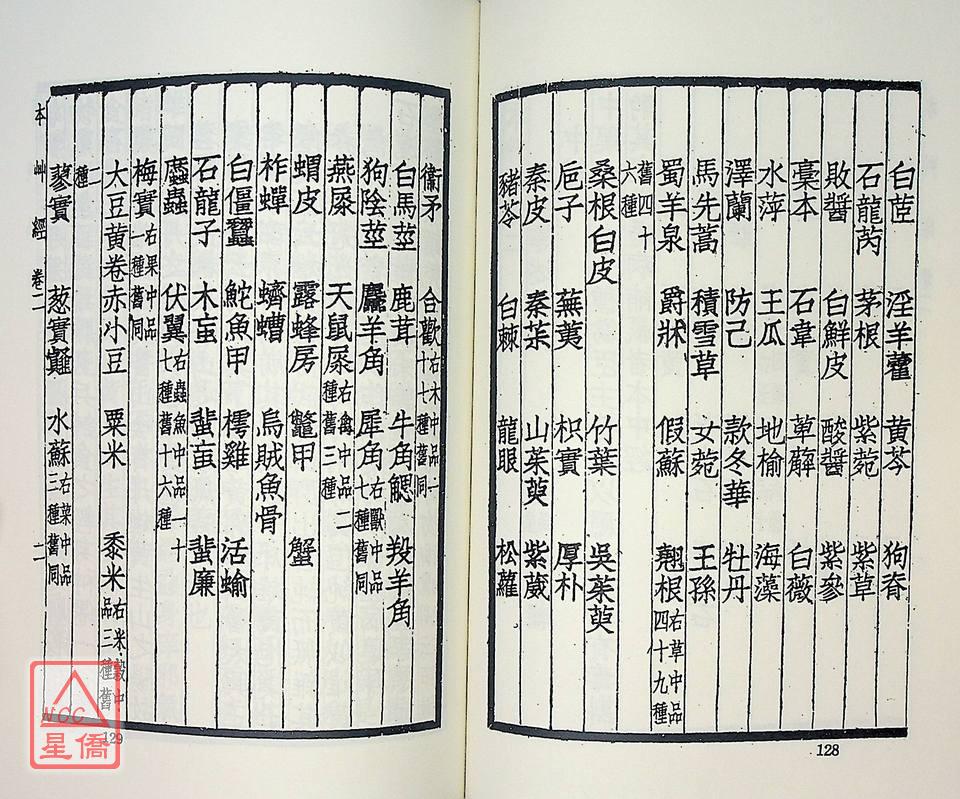 白茝 淫羊藿 黃芩 狗脊
石龍芮 茅根 紫菀 紫草
敗醬 白鮮皮 酸醬 紫參
藁本 石韋 萆薢 白薇
水萍 王瓜 地榆 海藻
澤蘭 防己 款冬華 牡丹
馬先蒿 積雪草 女菀 王孫
蜀羊泉 爵牀 假蘇 翹根右草中品四十九種
舊四十六種
桑根白皮 竹葉 吳茱萸
巵子 蕪荑 枳實 厚朴
秦皮 秦茮 山茱萸 紫葳
豬苓 白棘 龍眼 松蘿
128
衛矛 合歡右木中品一十七種舊同
白馬莖 鹿茸 牛角䚡 羖羊角
狗陰莖 麢羊角 犀角右獸中品七種舊同
燕屎 天鼠屎右禽中品二種舊三種
蝟皮 露蜂房 鼈甲 蟹
柞蟬 蠐螬 烏賊魚骨
白僵蠶 鮀魚甲 樗雞 活蝓
石龍子 木䖟 蜚䖟 蜚廉
䗪蟲 伏翼右蟲魚中品一十七種舊十六種
梅實右果中品一種舊同
大豆黃卷赤小豆 粟米 黍米右米穀中品三種舊
二種
蓼實 葱實䪥 水蘇右菜中品三種舊同
本艸經 卷二 二
129
NCC
星僑